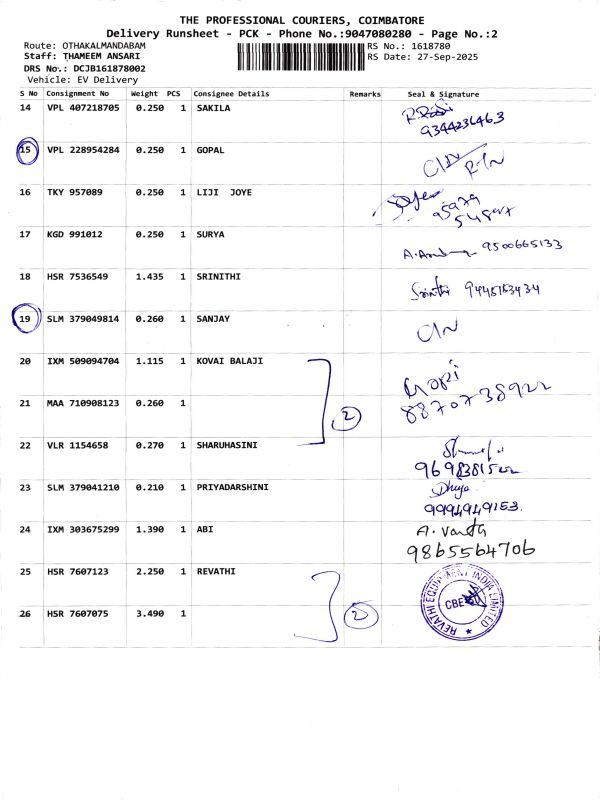 THE PROFESSIONAL COURIERS, COIMBATORE
Delivery Runsheet - PCK - Phone No.:9047080280 - Page No.:2
Route: OTHAKALMANDABAM
RS No.: 1618780
Staff: THAMEEM ANSARI
RS Date: 27-Sep-2025
DRS No.: DCJB161878002
Vehicle: EV Delivery
S No Consignment No Weight PCS Consignee Details Remarks Seal & Signature
14 VPL 407218705 0.250 1 SAKILA
9344236463
15 VPL 228954284 0.250 1 GOPAL
16 TKY 957089 0.250 1 LIJI JOYE
17 KGD 991012 0.250 1 SURYA 9500665133
18 HSR 7536549 1.435 1 SRINITHI Srinithi
19 SLM 379049814 0.260 1 SANJAY
20 IXM 509094704 1.115 1 KOVAI BALAJI Gopi
21 MAA 710908123 0.260 1 2 8870738922
22 VLR 1154658 0.270 1 SHARUHASINI
23 SLM 379041210 0.210 1 PRIYADARSHINI
9994949153
24 IXM 303675299 1.390 1 ABI
9865564706
25 HSR 7607123 2.250 1 REVATHI
REVATHI EQUIPMENT INDIA LIMITED
CBE
26 HSR 7607075 3.490 1 2